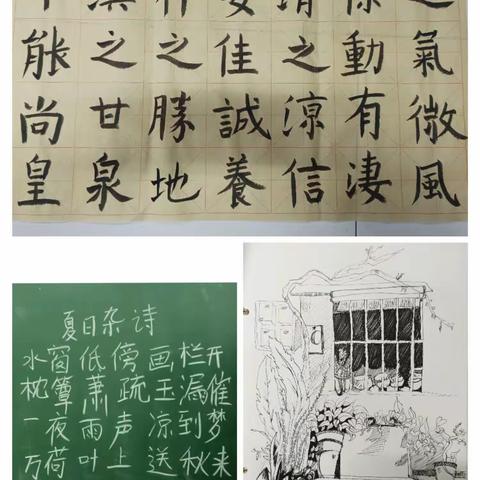 之氣微風
徐動有淒
清之涼信
安佳誠養
神之勝地
漢之甘泉
能尚皇
夏日杂诗
水窗低傍画栏开
枕簟萧疏玉漏催
一夜雨声凉到梦
万荷叶上送秋来